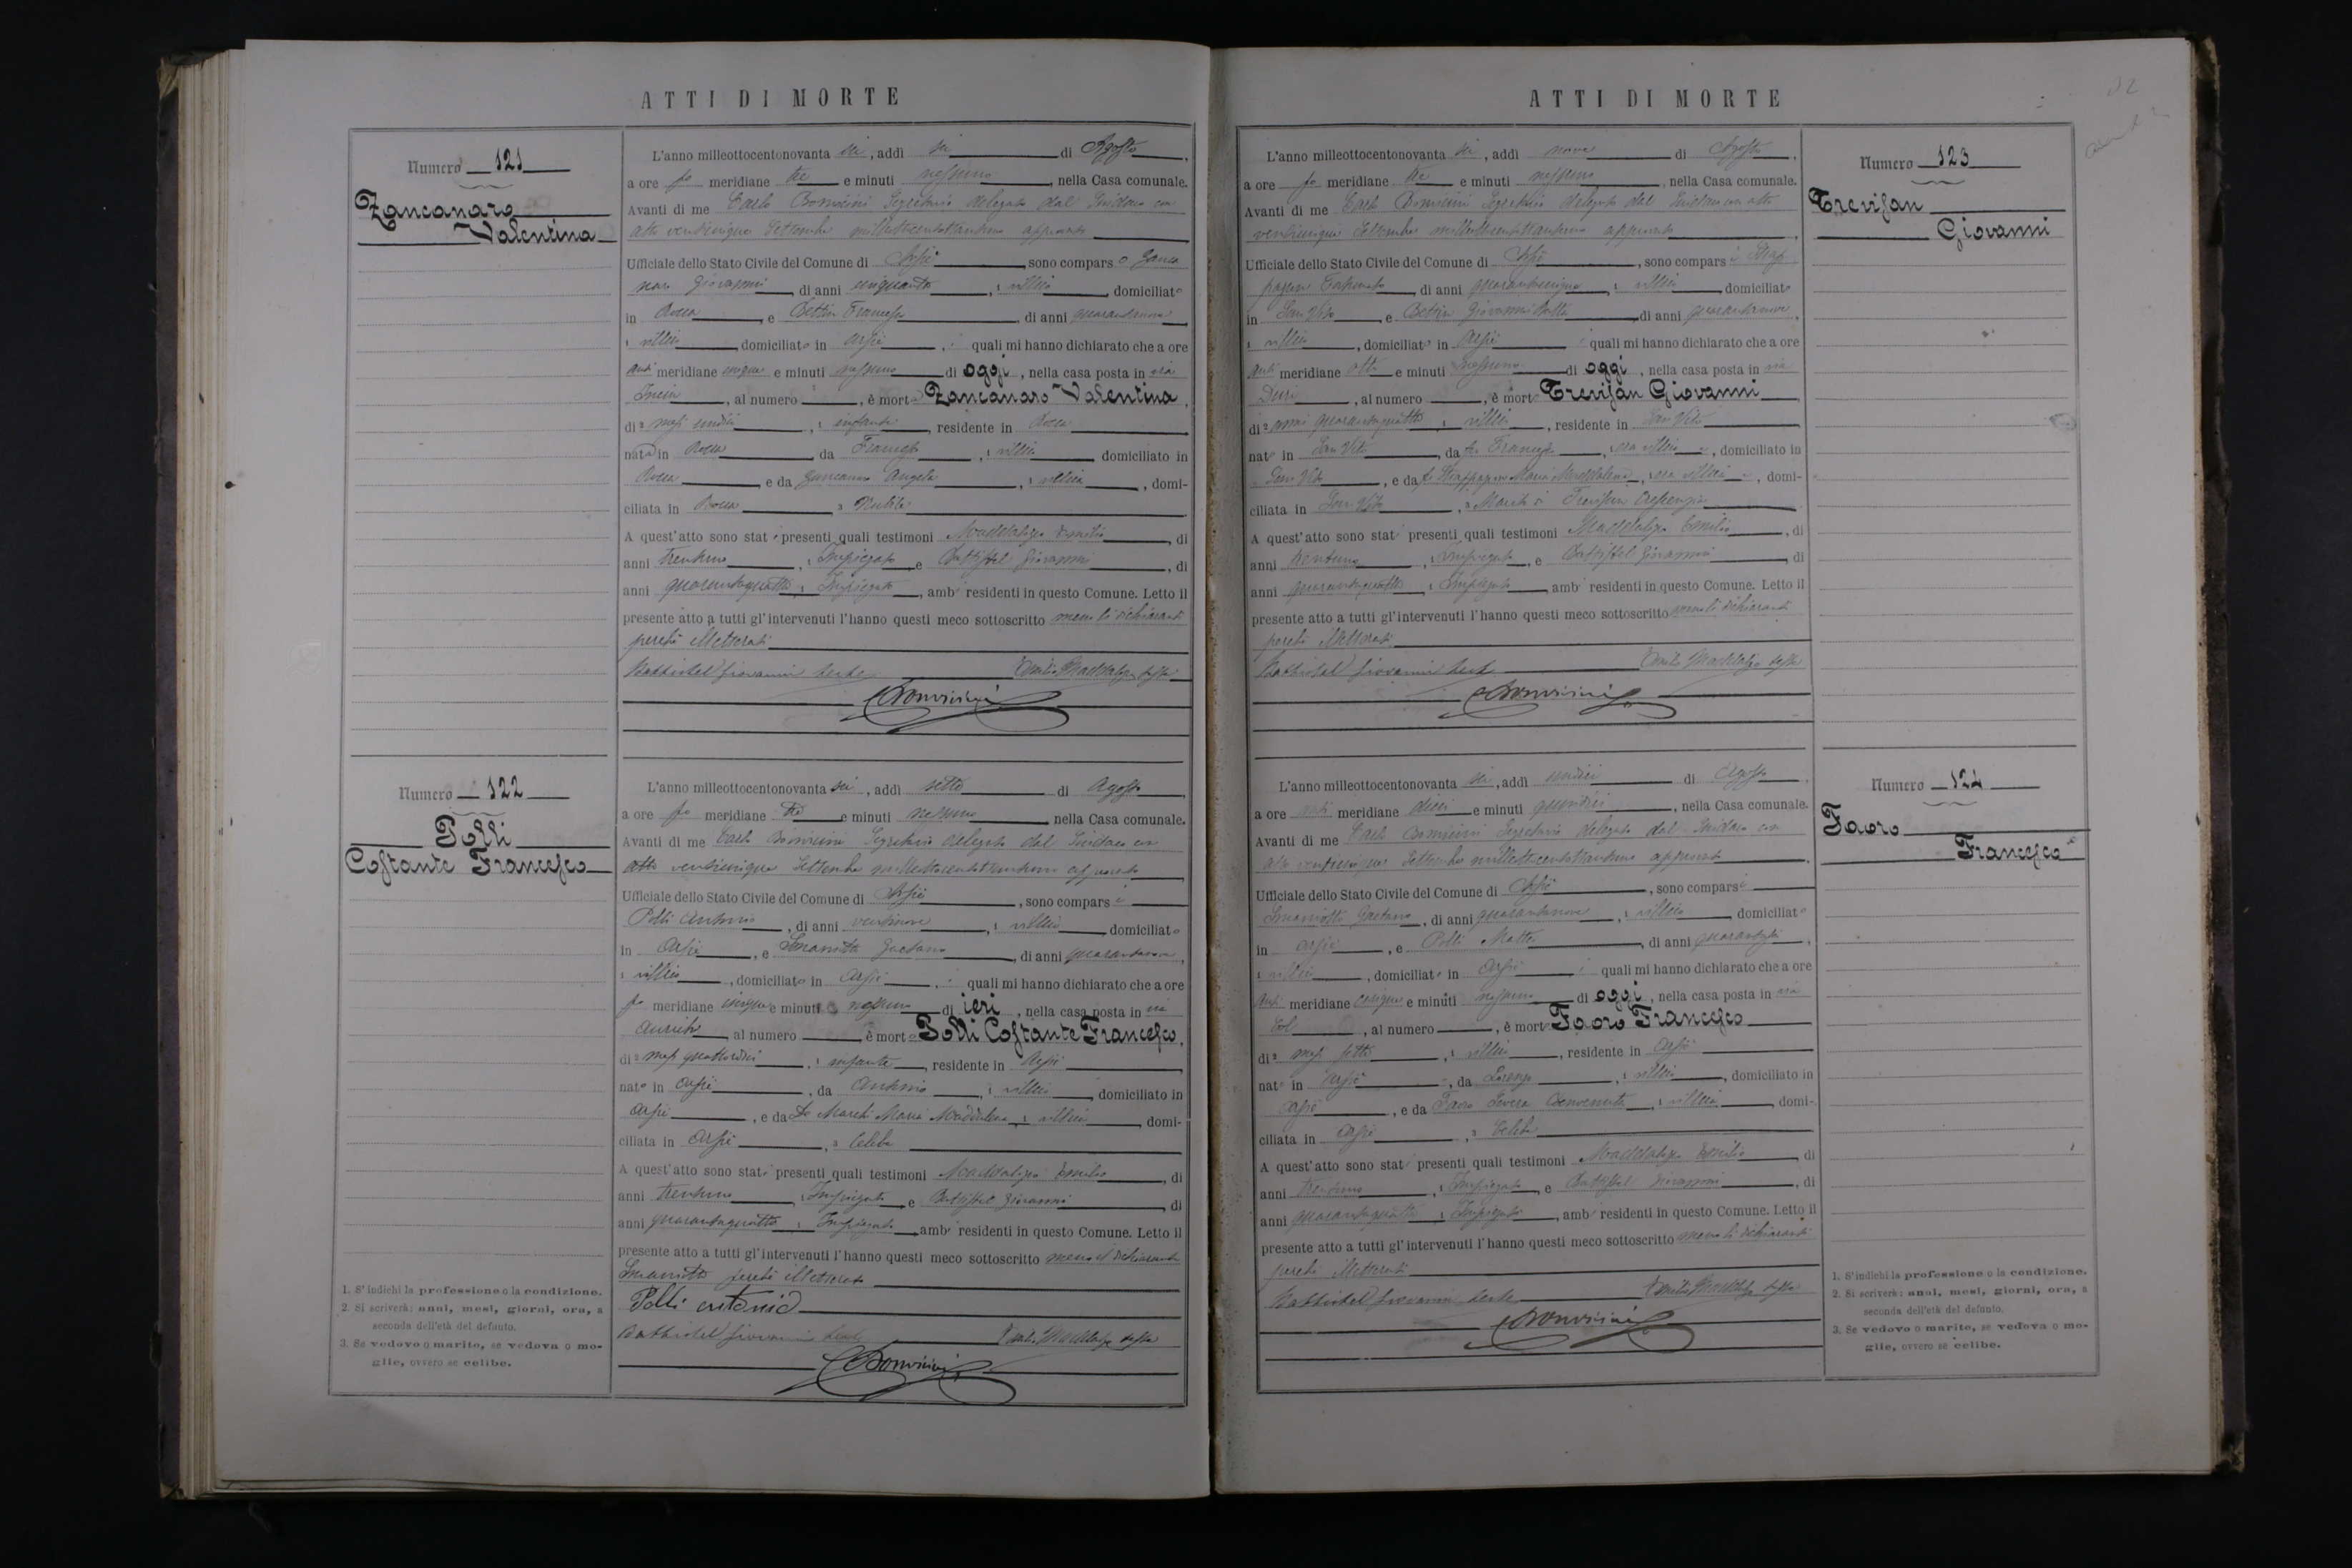 ATTI DI MORTE
Numero 121
Zancanaro
Valentina
L'anno milleottocentonovanta sei, addì sei di Agosto,
a ore po meridiane tre e minuti nessuno, nella Casa comunale.
Avanti di me Carlo Bonvicini Segretario delegato dal Sindaco con
atto venticinque Settembre milleottocentottantuno approvato
Ufficiale dello Stato Civile del Comune di Arsiè, sono comparso Zanca
naro Giovanni, di anni cinquanta, villico domiciliato
in Rocca, e Bettin Francesco, di anni quarantanove,
villico, domiciliato in Arsiè, i quali mi hanno dichiarato che a ore
anti meridiane cinque e minuti nessuno di oggi, nella casa posta in via
, al numero , è morta Zancanaro Valentina,
di mesi undici, infante, residente in Rocca
nata in Rocca, da Francesco, villico, domiciliato in
Rocca, e da Angela, villica, domi-
ciliata in Rocca, Nubile
A quest'atto sono stati presenti quali testimoni Maddalozzo Emilio, di
anni trentuno, Impiegato, e Battistel Giovanni, di
anni quarantaquattro, Impiegato, ambi residenti in questo Comune. Letto il
presente atto a tutti gl'intervenuti l'hanno questi meco sottoscritto meno li dichiaranti
perchè illetterati
Battistel Giovanni teste Emilio Maddalozzo teste
CBonvicini
Numero 122
Polli
Costante Francesco
L'anno milleottocentonovanta sei, addì sette di Agosto,
a ore po meridiane tre e minuti nessuno, nella Casa comunale.
Avanti di me Carlo Bonvicini Segretario delegato dal Sindaco con
atto venticinque Settembre milleottocentottantuno approvato
Ufficiale dello Stato Civile del Comune di Arsiè, sono comparsi
Polli Antonio, di anni ventinove, villico domiciliato
in Arsiè, e Smaniotto Gaetano, di anni quarantanove,
villico, domiciliato in Arsiè, i quali mi hanno dichiarato che a ore
po meridiane cinque e minuti nessuno di ieri, nella casa posta in via
, al numero , è morto Polli Costante Francesco,
di mesi quattordici, infante, residente in Arsiè
nato in Arsiè, da Antonio, villico, domiciliato in
Arsiè, e da De Marchi Maria Maddalena, villica, domi-
ciliata in Arsiè, Celibe
A quest'atto sono stati presenti quali testimoni Maddalozzo Emilio, di
anni trentuno, Impiegato, e Battistel Giovanni, di
anni quarantaquattro, Impiegato, ambi residenti in questo Comune. Letto il
presente atto a tutti gl'intervenuti l'hanno questi meco sottoscritto meno il dichiarante
Smaniotto perchè illetterato
Polli antonio
Battistel Giovanni teste Emilio Maddalozzo teste
CBonvicini
1. S'indichi la professione o la condizione.
2. Si scriverà: anni, mesi, giorni, ora, a
seconda dell'età del defunto.
3. Se vedovo o marito, se vedova o mo-
glie, ovvero se celibe.
ATTI DI MORTE
Numero 123
Trevisan
Giovanni
L'anno milleottocentonovanta sei, addì nove di Agosto,
a ore po meridiane tre e minuti nessuno, nella Casa comunale.
Avanti di me Carlo Bonvicini Segretario delegato dal Sindaco con atto
venticinque Settembre milleottocentottantuno approvato
Ufficiale dello Stato Civile del Comune di Arsiè, sono comparsi Strap
pazzon, di anni quarantacinque, villico domiciliato
in San Vito, e Bettin Giovanni Batta, di anni quarantanove,
villico, domiciliato in Arsiè, i quali mi hanno dichiarato che a ore
anti meridiane otto e minuti nessuno di oggi, nella casa posta in via
, al numero , è morto Trevisan Giovanni
di anni quarantaquattro, villico, residente in San Vito
nato in San Vito, da fu Francesco, era villico, domiciliato in
San Vito, e da fu Strappazzon Maria Maddalena, era villica, domi-
ciliata in San Vito, Marito di Trevisan
A quest'atto sono stati presenti quali testimoni Maddalozzo Emilio, di
anni trentuno, Impiegato, e Battistel Giovanni, di
anni quarantaquattro, Impiegato, ambi residenti in questo Comune. Letto il
presente atto a tutti gl'intervenuti l'hanno questi meco sottoscritto meno li dichiaranti
perchè illetterati
Battistel Giovanni teste Emilio Maddalozzo teste
CBonvicini
Numero 124
Faoro
Francesco
L'anno milleottocentonovanta sei, addì undici di Agosto,
a ore anti meridiane dieci e minuti quindici, nella Casa comunale.
Avanti di me Carlo Bonvicini Segretario delegato dal Sindaco con
atto venticinque Settembre milleottocentottantuno approvato
Ufficiale dello Stato Civile del Comune di Arsiè, sono comparsi
Smaniotto Gaetano, di anni quarantanove, villico domiciliato
in Arsiè, e Polli Matteo, di anni quarantasei,
villico, domiciliato in Arsiè, i quali mi hanno dichiarato che a ore
anti meridiane cinque e minuti nessuno di oggi, nella casa posta in via
, al numero , è morto Faoro Francesco
di mesi sette, villico, residente in Arsiè
nato in Arsiè, da Lorenzo, villico, domiciliato in
Arsiè, e da Faoro Benvenuta, villica, domi-
ciliata in Arsiè, Celibe
A quest'atto sono stati presenti quali testimoni Maddalozzo Emilio, di
anni trentuno, Impiegato, e Battistel Giovanni, di
anni quarantaquattro, Impiegato, ambi residenti in questo Comune. Letto il
presente atto a tutti gl'intervenuti l'hanno questi meco sottoscritto meno li dichiaranti
perchè illetterati
Battistel Giovanni teste Emilio Maddalozzo teste
CBonvicini
1. S'indichi la professione o la condizione.
2. Si scriverà: anni, mesi, giorni, ora, a
seconda dell'età del defunto.
3. Se vedovo o marito, se vedova o mo-
glie, ovvero se celibe.